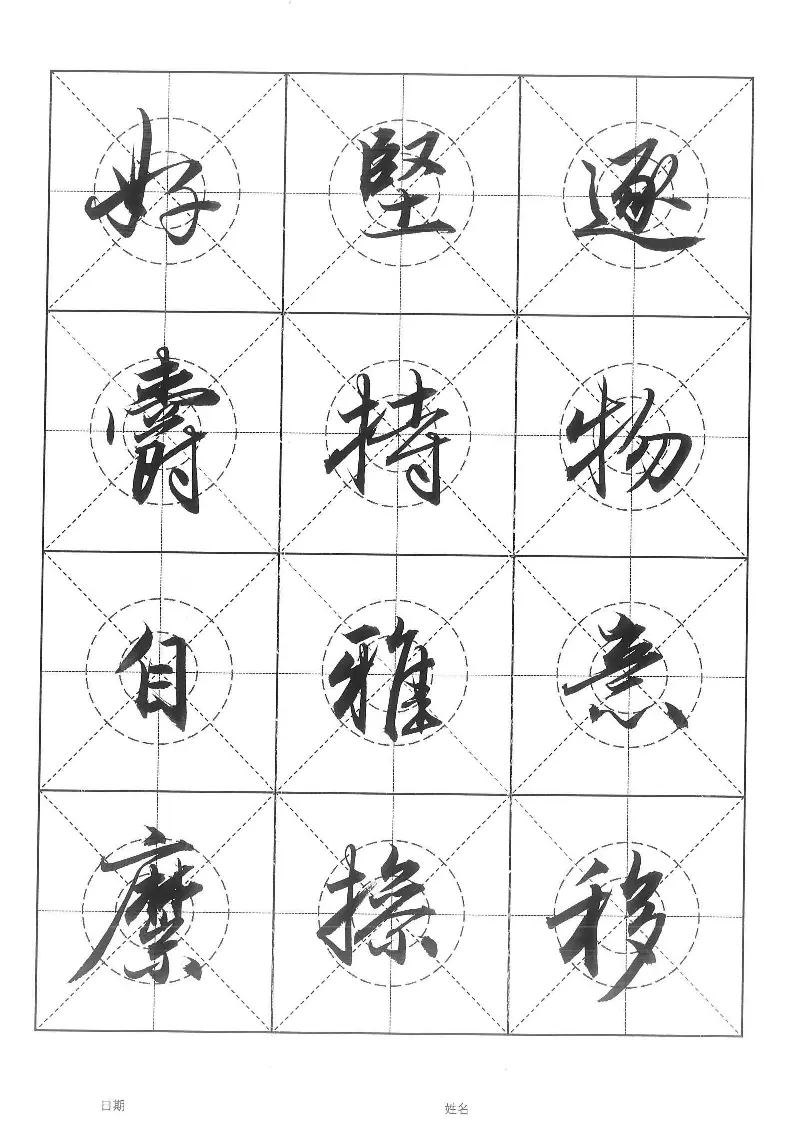 逐物意移
堅持雅操
好爵自縻
日期 姓名